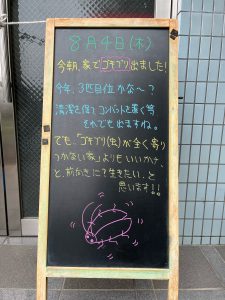 8月4日(木)
今朝、家でゴキブリ出ました!
今年、3匹目位かな〜?
清潔を保てコンバットを置く等
それでも出ますね。
でも、「ゴキブリ(虫)が全く寄り
つかない家」よりもいいかナ、
と、前向きにて生きたい、と
思います!!